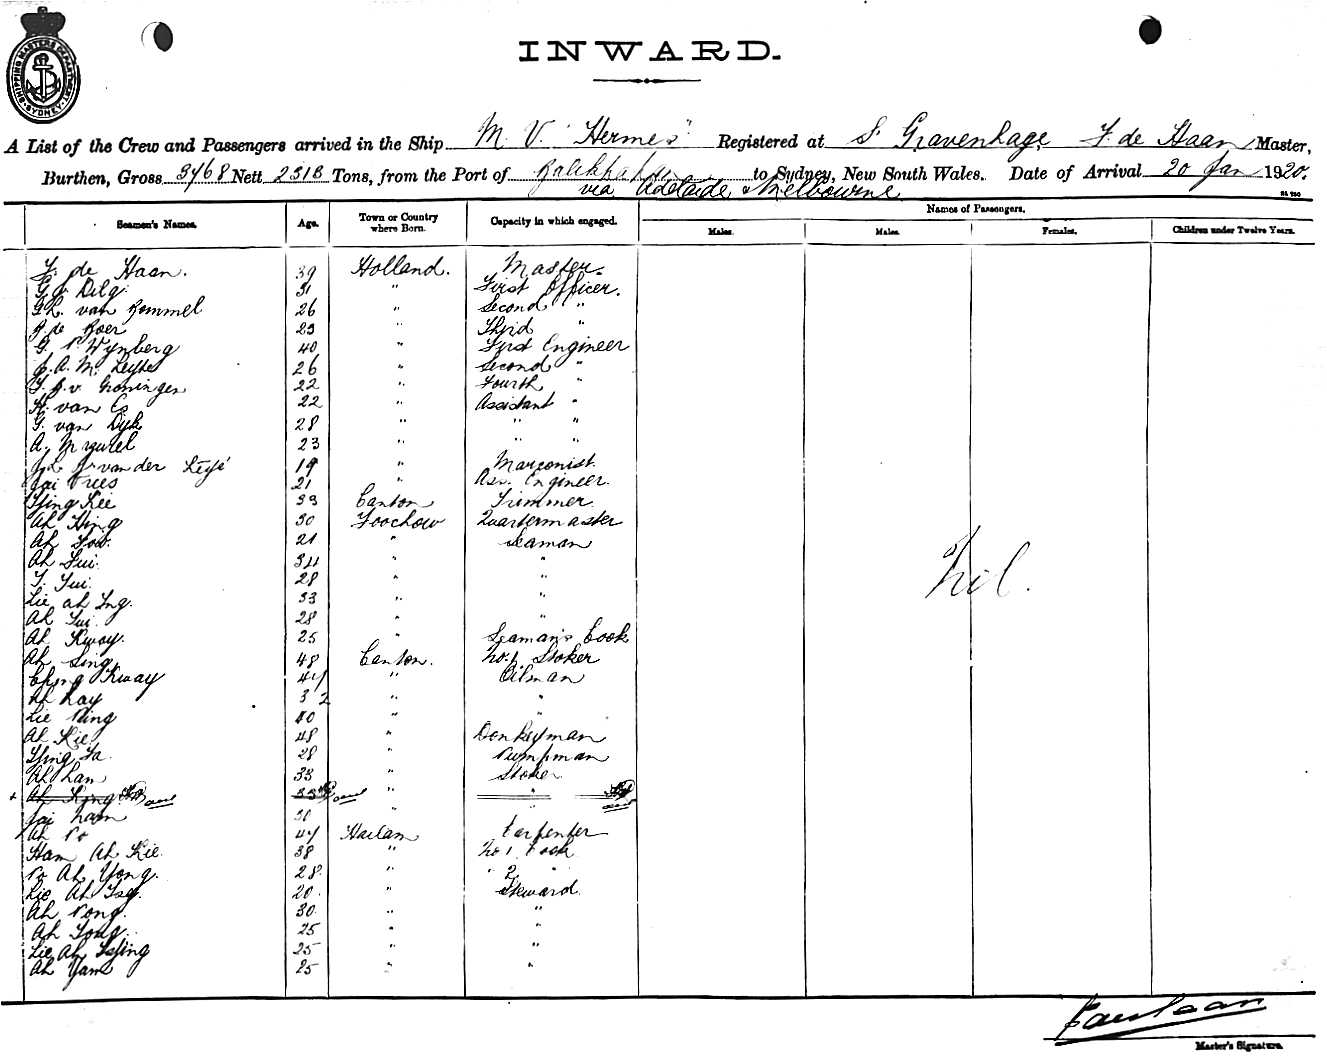 SHIPPING MASTERS DEPARTMENT SYDNEY
INWARD.
A List of the Crew and Passengers arrived in the Ship M. V. "Hermes" Registered at S' Gravenhage F. de Haan Master,
Burthen, Gross 3768 Nett 2318 Tons, from the Port of Balikpapan to Sydney, New South Wales. Date of Arrival 20 Jan 1920.
via Adelaide & Melbourne
Seamen's Names. Age. Town or Country where Born. Capacity in which engaged. Names of Passengers.
Males. Males. Females. Children under Twelve Years.
F. de Haan. 39 Holland. Master.
Dilg 31 " First Officer.
van Rommel 26 " Second "
de Boer 23 " Third "
G. P. Wynberg 40 " First Engineer
A. M. 26 " Second "
v. Groningen 22 " Fourth "
H. van Es 22 " Assistant "
G. van Dyk 28 " " "
A. 23 " " "
van der 19 " Marconist.
21 " Ass. Engineer.
Tjing Kee 33 Canton Trimmer
Ah Hing 30 Foochow Quartermaster
Ah 21 " Seaman
Ah 34 " "
28 " "
Lie ah Ing. 33 " "
Ah 28 " "
Ah Kway. 25 " Seaman's Cook
Ah Sing 48 Canton. No. 1 Stoker
Ching Kway 47 " Oilman
Ah 32 " "
Lie 40 " "
Ah Kie 48 " Donkeyman
Tjing Fa 28 " Pumpman
Ah 33 " Stoker
Ah 33 " "
30 " "
Ah Po 47 Hailam Carpenter
Ham Ah Kie. 38 " No 1 Cook
Po Ah Yong. 28 " " 2 "
Lie Ah 20 " Steward
Ah Pong. 30 " "
Ah 25 " "
Lie Ah 25 " "
Ah Yam 25 " "
Nil.
Master's Signature.